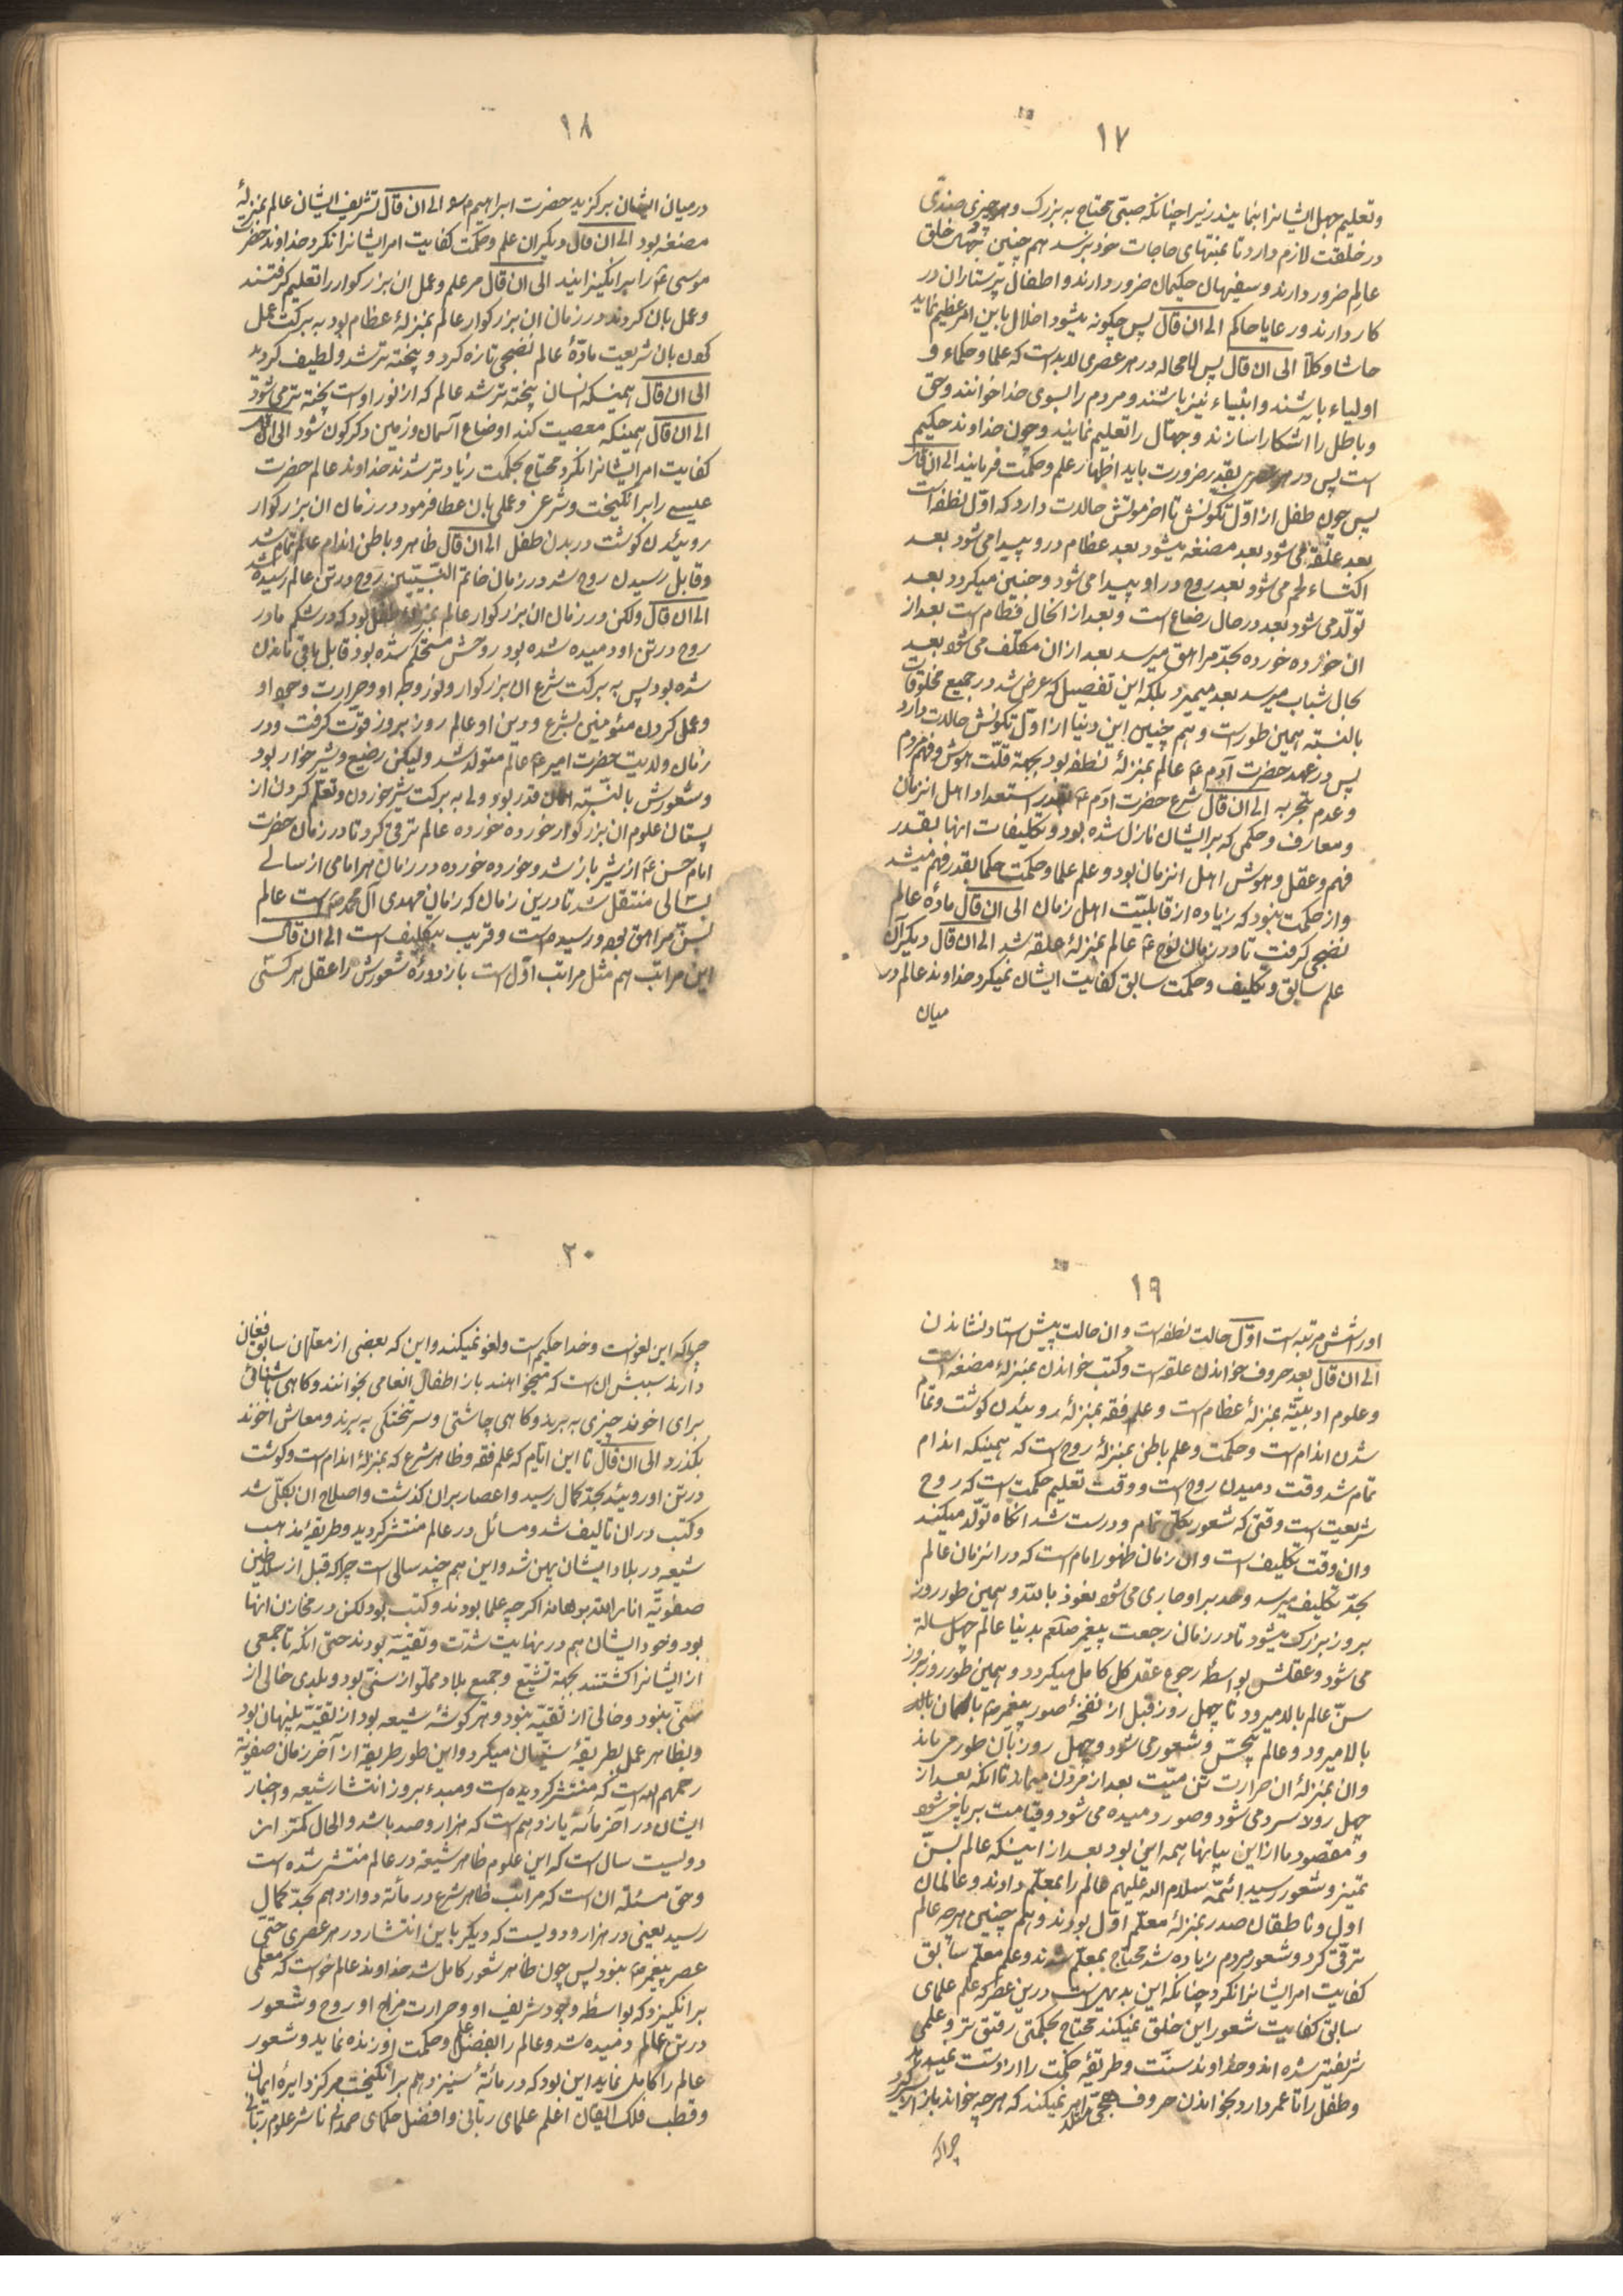 ١٧
وتعلیم جهل ایشانرا بنمایند زیرا چنانکه صبی محتاج به بزرک و هر چیزی ضدی
در خلقت لازم دارد تا بمنتهای حاجات خود برسد هم چنین جهال خلق
عالم ضرور دارند و سفیهان حکیمان ضرور دارند و اطفال پرستاران در
کار دارند و رعایا حاکم الی ان قال پس چکونه میشود اخلال باین امر عظیم نماید
حاشا و کلّا الی ان قال پس لامحاله در هر عصری لابد است که علما و حکماء و
اولیاء باشند و انبیاء نیز باشند و مردم را بسوی خدا خوانند و حق
و باطل را اشکار سازند و جهّال را تعلیم نمایند و چون خداوند حکیم
است پس در هر عصری بقدر ضرورت باید اظهار علم و حکمت فرمایند الی ان قال
پس چون طفل از اوّل تکونش تا اخر موتش حالت دارد که اوّل نطفه است
بعد علقه می شود بعد مضغه میشود بعد عظام در و پیدا می شود بعد
اکتساء لحم می شود بعد روح در او پیدا می شود و جنین میکردد بعد
تولّد می شود بعد در حال رضاع است و بعد از الحال فطام است بعد از
ان خورده خورده بحدّ مراهق میرسد بعد از ان مکلّف می شود بعد
بحال شباب میرسد بعد میمیرد بلکه این تفصیل که عرض شد در جمیع مخلوقات
بالنسبه همین طور است و هم چنین این دنیا از اوّل تکونش حالت دارد
پس در عهد حضرت آدم ع عالم بمنزلهٔ نطفه بود بجهة قلّت هوش و فهم مردم
و عدم تجربه الی ان قال شرع حضرت ادم ع بقدر استعداد اهل انزمان
و معارف و حکمی که بر ایشان نازل شده بود و تکلیفات انها بقدر
فهم و عقل و هوش اهل انزمان بود و علم علما و حکمت حکما بقدر فهم میشد
و از حکمت نبود که زیاده از قابلیّت اهل زمان الی ان قال مادهٔ عالم
نضجی کرفت تا در زمان نوح ع عالم بمنزلهٔ علقه شد الی ان قال دیکر آن
علم سابق و تکلیف و حکمت سابق کفایت ایشان نمیکرد خداوند عالم در
میان
١٨
در میان ایشان برکزید حضرت ابراهیم الی ان قال تشریف ایشان عالم بمنزلهٔ
مضغه بود الی ان قال دیکر ان علم و حکمت کفایت امر ایشانرا نکرد خداوند حضرت
موسی ع را برانکیزانید الی ان قال مر علم و عمل ان بزرکوار را تعلیم کرفتند
و عمل بان کردند در زمان ان بزرکوار عالم بمنزلهٔ عظام بود به برکت عمل
کردن بان شریعت مادّهٔ عالم نضجی تازه کرد و پخته تر شد و لطیف کردید
الی ان قال همینکه انسان پخته تر شد عالم که از نور او است پخته تر می شود
الی ان قال همینکه معصیت کند اوضاع آسمان و زمین دکرکون شود الی ان قال
کفایت امر ایشانرا نکرد محتاج بحکمت زیادتر شدند خداوند عالم حضرت
عیسی را برانکیخت و شرعی و عملی بان عطا فرمود در زمان ان بزرکوار
روئیدن کوشت در بدن طفل الی ان قال ظاهر و باطن اندام عالم تمام شد
و قابل رسیدن روح شد در زمان خاتم النّبییّن روح در تن عالم رسیده شد
الی ان قال ولکن در زمان ان بزرکوار عالم بمنزلهٔ طفل بود که در شکم مادر
روح در تن او دمیده شده بود روحش مستحکم شده بود قابل باقی ماندن
شده بود پس به برکت شرع ان بزرکوار و نور وجه او و حرارت و حیوة او
و عمل کردن مئومنین بشرع و دین او عالم روز بروز قوّت کرفت و در
زمان ولایت حضرت امیر ع عالم متولد شد ولیکن رضیع و شیر خوار بود
و شعورش بالنسبه همان قدر بود ولی به برکت شیر خوردن و تعلّم کردن از
پستان علوم ان بزرکوار خورده خورده عالم ترقی کرد تا در زمان حضرت
امام حسن ع از شیر باز شد و خورده خورده در زمان هر امامی از سالی
بسالی منتقل شد تا درین زمان که زمان مهدی آل محمد است عالم
بسنّ مراهق بحدّ رسیده است و قریب بتکلیف است الی ان قال
این مراتب هم مثل مراتب اوّل است باز دورهٔ شعورش را عقل هر کسی
١٩
اور اشش مرتبه است اوّل حالت نطفه است و ان حالت پیش استاد نشاندن
الی ان قال بعد حروف خواندن علقه است و کتب خواندن بمنزلهٔ مضغه است
و علوم ادبیّه بمنزلهٔ عظام است و علم فقه بمنزلهٔ روئیدن کوشت و تمام
شدن اندام است و حکمت و علم باطن بمنزلهٔ روح است که همینکه اندام
تمام شد وقت دمیدن روح است و وقت تعلیم حکمت است که روح
شریعت است وقتی که شعور بکلّی تمام و درست شد انکاه تولّد میکند
و ان وقت تکلیف است و ان زمان ظهور امام است که در انزمان عالم
بحدّ تکلیف میرسد و حد بر او جاری می شود نعوذ بالله و همین طور روز
بروز بزرک میشود تا در زمان رجعت پیغمبر صلعم بدنیا عالم چهل ساله
می شود و عقلش بواسطهٔ رجوع عقل کل کامل میکردد و همین طور روز بروز
سنّ عالم بالا میرود تا چهل روز قبل از نفخهٔ صور پیغمبر ص بآسمان بالا
بالا میرود و عالم بیحسّ و شعور می شود و چهل روز بان طور می ماند
و ان بمنزلهٔ ان حرارت تن میّت بعد از مردن میماند تا انکه بعد از
چهل روز سرد می شود و صور دمیده می شود و قیامت برپا می شود
و مقصود ما از این بیانها همه این بود بعد از اینکه عالم بسنّ
تمیز و شعور رسید ائمّه سلام الله علیهم عالم را بمعلّم دادند و عالمان
اول و ناطقان صدر بمنزلهٔ معلّم اوّل بودند و هم چنین هر چه عالم
ترقّی کرد و شعور مردم زیاده شد محتاج بمعلّم شدند و علم معلّم سابق
کفایت امر ایشانرا نکرد چنانکه این بدیهی است درین عصر که علم علمای
سابق کفایت شعور این خلق نمیکند محتاج بحکمتی رقیق تر و علمی
شریفتر شده اند و خداوند سنّت و طریقهٔ حکمت را از دست نمیدهد
و طفل را تا عمر دارد بخواندن حروف تهجّی امر نمیکند که هر چه خواند باز از سر کیرد
چرا که
٢٠
چرا که این لغو است و خدا حکیم است و لغو نمیکند و این که بعضی از معلمان سابق فغان
دارند سببش ان است که میخواهند باز اطفال انعامی بخوانند و کاهی باشنائی
برای اخوند چیزی به برند و کاهی چاشتی و سر تختکی به برند و معاش اخوند
بکذرد الی ان قال تا این ایّام که علم فقه و ظاهر شرع که بمنزلهٔ اندام است و کوشت
در تن او روئید بحدّ کمال رسید و اعصار بران کذشت و اصلاح ان بکلّی شد
و کتب دران تالیف شد و مسائل در عالم منتشر کردید و طریقهٔ مذهب
شیعه در بلاد ایشان پهن شد و این هم چند سالی است چرا که قبل از سلاطین
صفویّه انار الله برهانه اکر چه علما بودند و کتب بود لکن در مخازن انها
بود و خود ایشان هم در نهایت شدّت و تقیّه بودند حتی انکه تا جمعی
از ایشانرا کشتند بجهة تشیّع و جمیع بلاد مملوّ از سنّی بود و بلدی خالی از
سنّی نبود و خالی از تقیّه نبود و هر کوشهٔ شیعه بود از تقیّه پنهان بود
و بظاهر عمل بطریقهٔ سنّیان میکرد و این طور طریقه از آخر زمان صفویّه
رحمهم الله است که منتشر کردیده است و مبدء بروز انتشار شیعه و اخبار
ایشان در آخر مائهٔ یازدهم است که هزار و صد باشد و الحال کمتر از
دویست سال است که این علوم ظاهر شیعه در عالم منتشر شده است
و حقّ مسئله ان است که مراتب ظاهر شرع در مأتهٔ دوازدهم بحدّ کمال
رسید یعنی در هزار و دویست که دیکر باین انتشار در هر عصری حتّی
عصر پیغمبر ص نبود پس چون ظاهر شعور کامل شد خداوند عالم خواست که معلّمی
برانکیزد که بواسطهٔ وجود شریف او و حرارت مزاج او روح و شعور
در تن عالم دمیده شد و عالم را بفضل علم و حکمت او زنده نماید و شعور
عالم را کامل نماید این بود که در مائهٔ سیزدهم برانکیخت مرکز دایرهٔ ایمان
و قطب فلک ایقان اعلم علمای ربّانی و افضل حکمای صمدانی ناشر علوم ربّانی